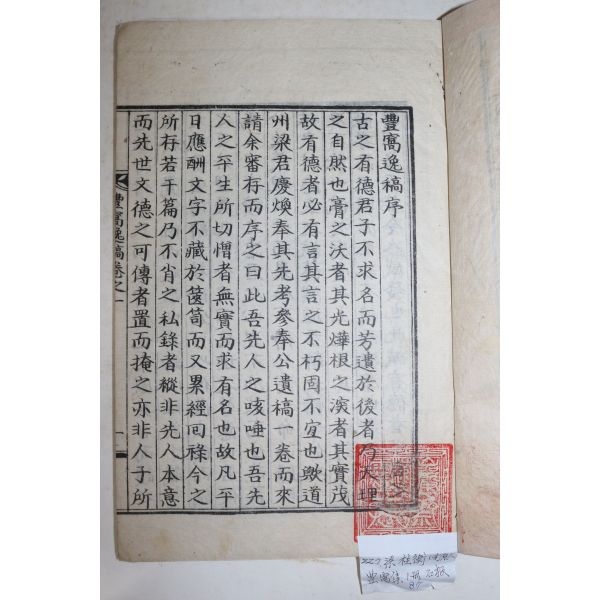 豐窩逸稿序
古之有德君子不求名而芳遺於後者乃天理
之自然也膏之沃者其光燁根之深者其實茂
故有德者必有言其言之不朽固不宜也歟道
州梁君慶煥奉其先考參奉公遺稿一卷而來
請余審存而序之曰此吾先人之咳唾也吾先
人之平生所切憎者無實而求有名也故凡平
日應酬文字不藏於篋笥而又累經回祿今之
所存若干篇乃不肖之私錄者縱非先人本意
而先世文德之可傳者置而掩之亦非人子所
豐窩逸稿卷之一
一
227. 梁柱
豐窩 1冊 石版